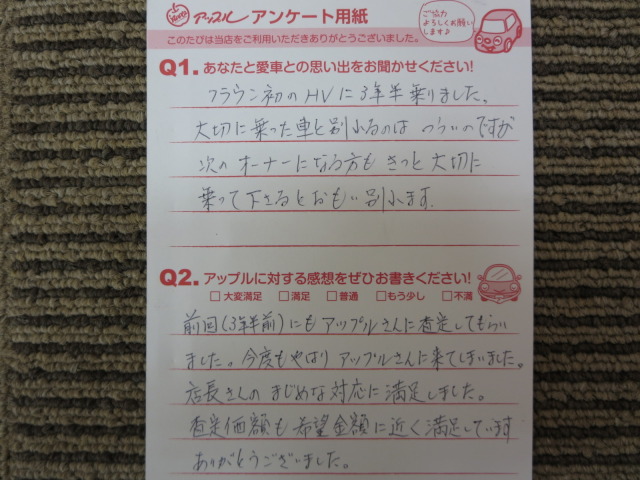 アップル アンケート用紙
ご協力
よろしくお願い
します♪
このたびは当店をご利用いただきありがとうございました。
Q1. あなたと愛車との思い出をお聞かせください!
クラウン初のHVに3年半乗りました。
大切に乗った車と別れるのは つらいのですが
次の オーナーになる方も きっと 大切に
乗って下さるとおもい別れます.
Q2. アップルに対する感想をぜひお書きください!
□大変満足 □満足 □普通 □もう少し □不満
前回(3年半前)にもアップルさんに査定してもらい
ました。今度もやはり アップルさんに来てしまいました。
店長さんの まじめな対応に満足しました。
査定価額も希望金額に近く満足しています
ありがとうございました。